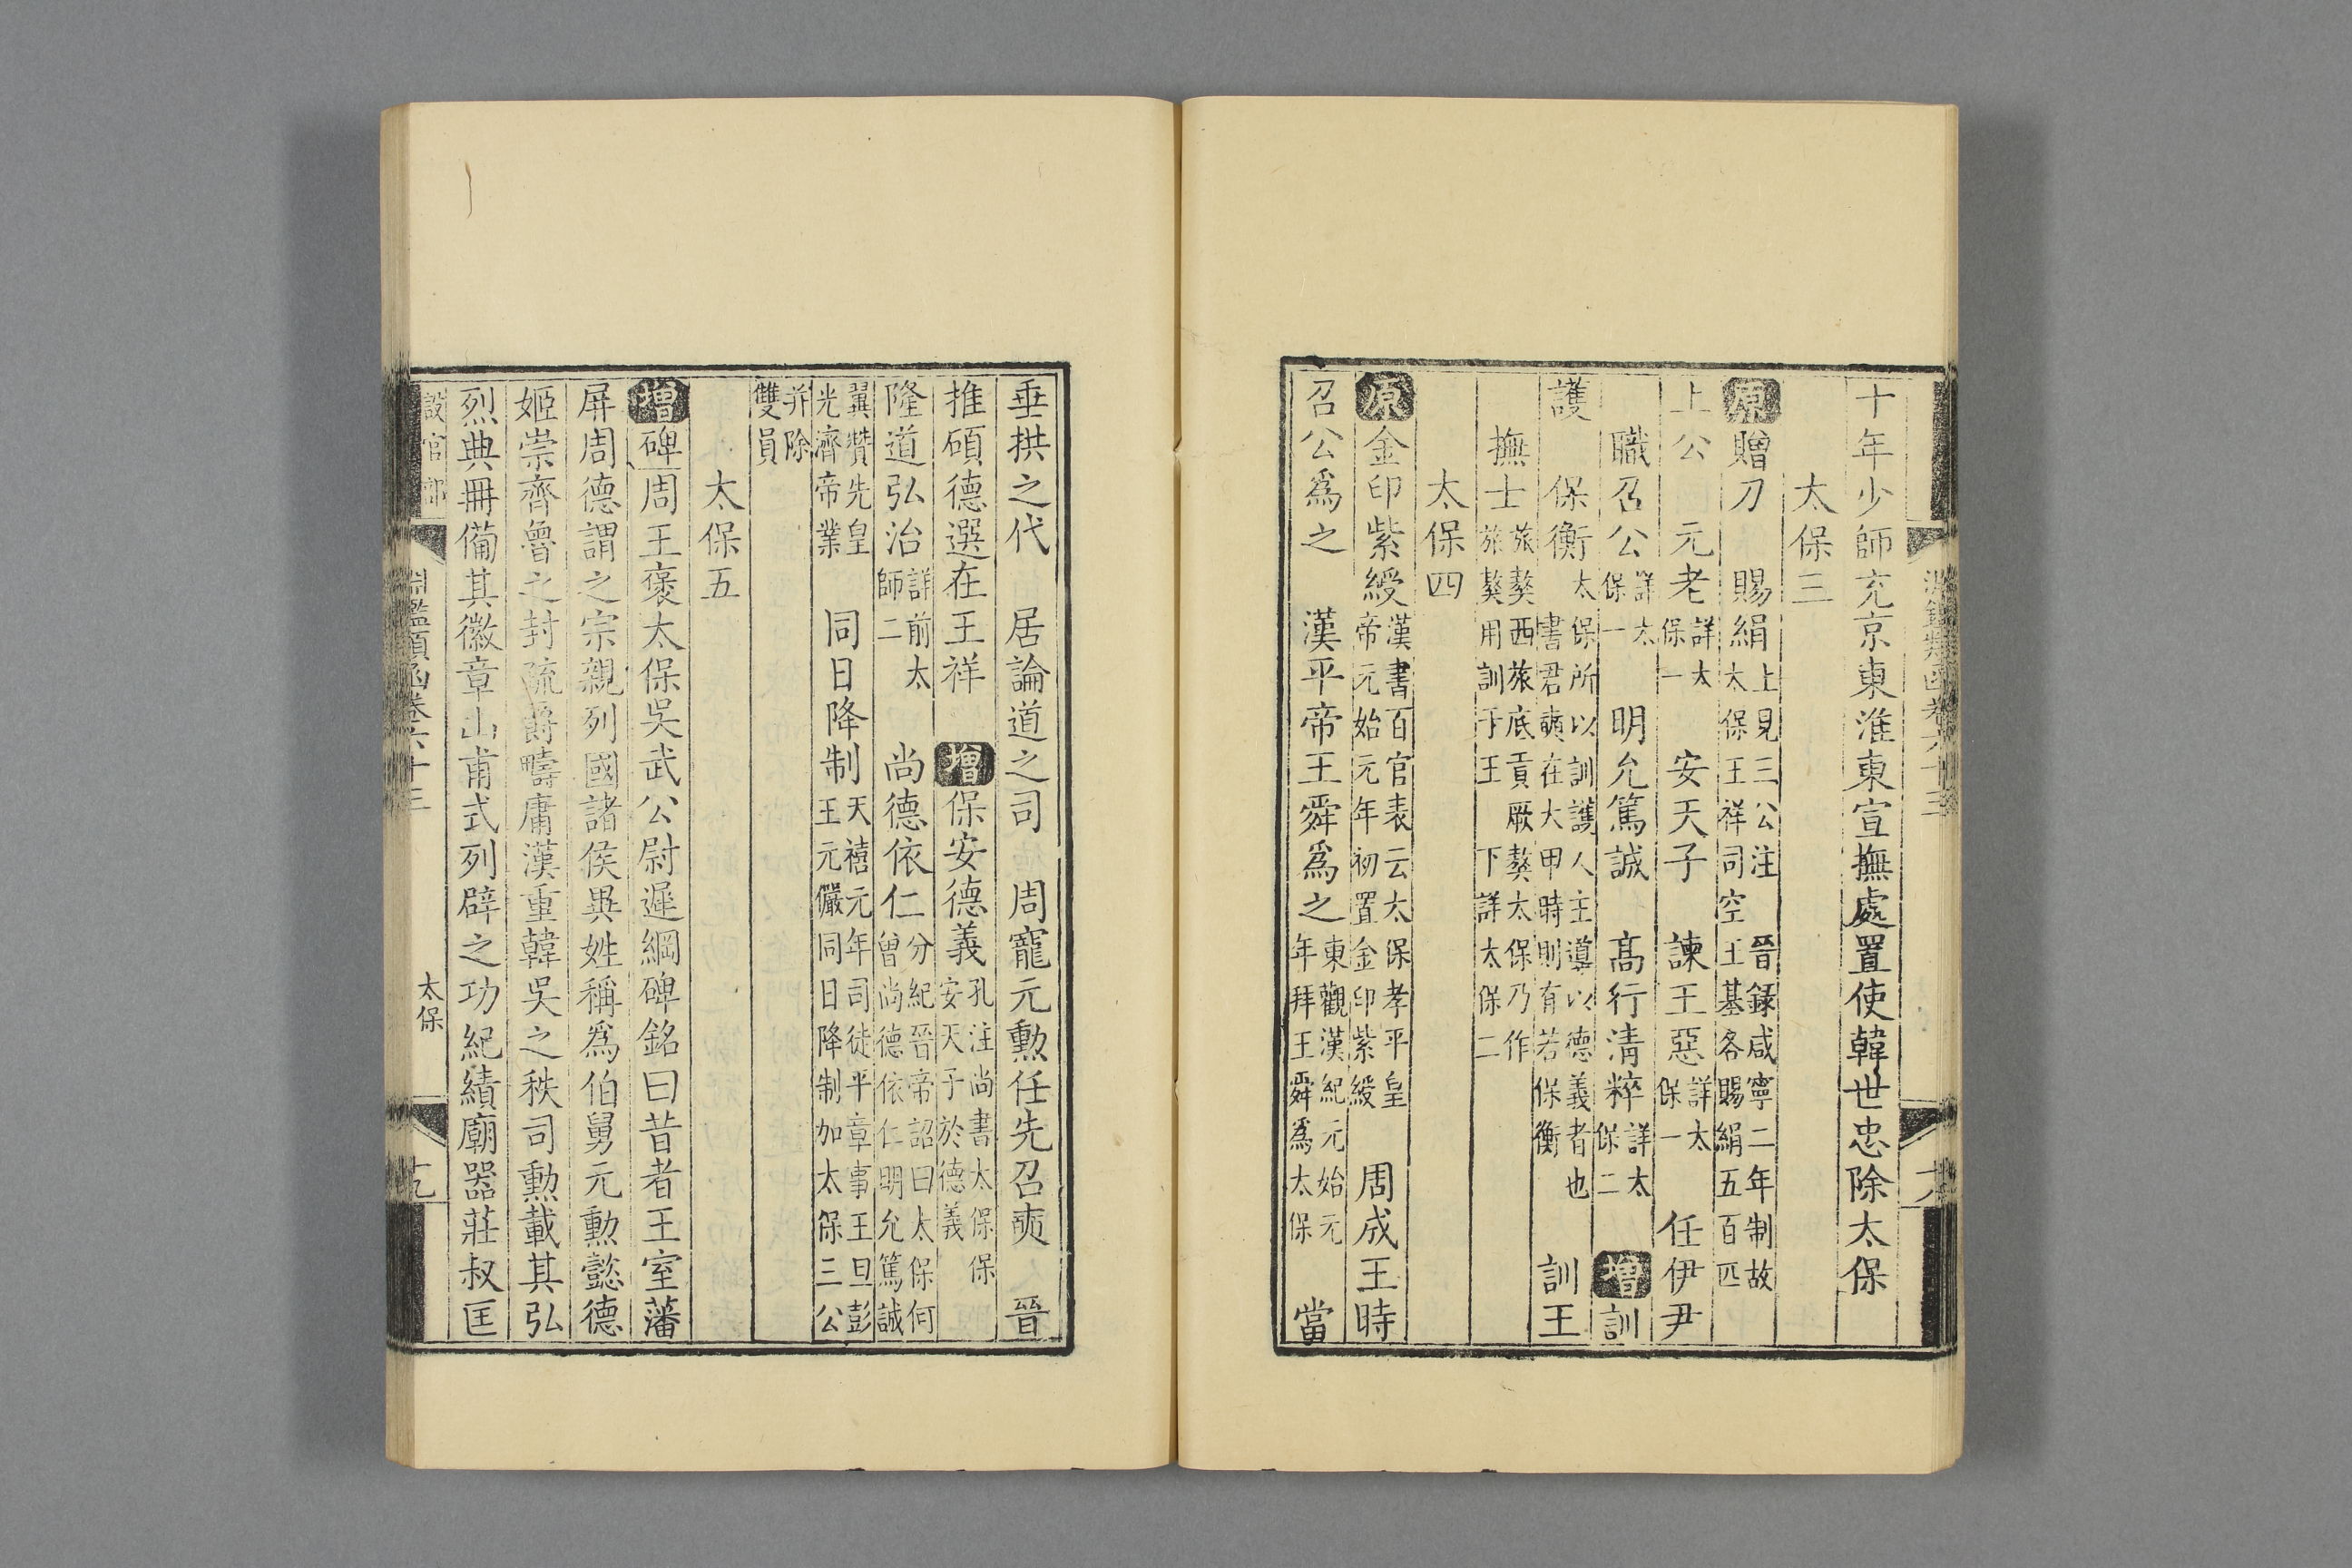 十年少師充京東淮東宣撫處置使韓世忠除太保
太保三
原贈刀 賜絹上見三公注 晉錄咸寧二年制故太保王祥司空王基各賜絹五百匹
上公 元老詳太保一 安天子 諫王惡詳太保一 任伊尹
職召公詳太保一 明允篤誠 高行清粹詳太保二 增訓
護 保衡太保所以訓護人主導以德義者也書君奭在大甲時則有若保衡 訓王
撫士旅獒西旅底貢厥獒太保乃作旅獒用訓于王下詳太保二
太保四
原金印紫綬漢書百官表云太保孝平皇帝元始元年初置金印紫綬 周成王時
召公爲之 漢平帝王舜爲之東觀漢紀元始元年拜王舜爲太保 當
垂拱之代 居論道之司 周寵元勳任先召奭 晉
推碩德選在王祥 增保安德義孔注尚書太保保安天子於德義
隆道弘治詳前太師二 尚德依仁分紀晉帝詔曰太保何曾尚德依仁明允篤誠
翼贊先皇光濟帝業 同日降制天禧元年司徒平章事王旦彭王元儼同日降制加太保三公
并除雙員
太保五
增碑周王褒太保吳武公尉遲綱碑銘曰昔者王室藩
屏周德謂之宗親列國諸侯異姓稱爲伯舅元勳懿德
姬崇齊魯之封疏爵疇庸漢重韓吳之秩司勳載其弘
烈典冊備其徽章山甫式列辟之功紀績廟器莊叔匡
設官部 淵鑑類函卷六十三 太保 十九